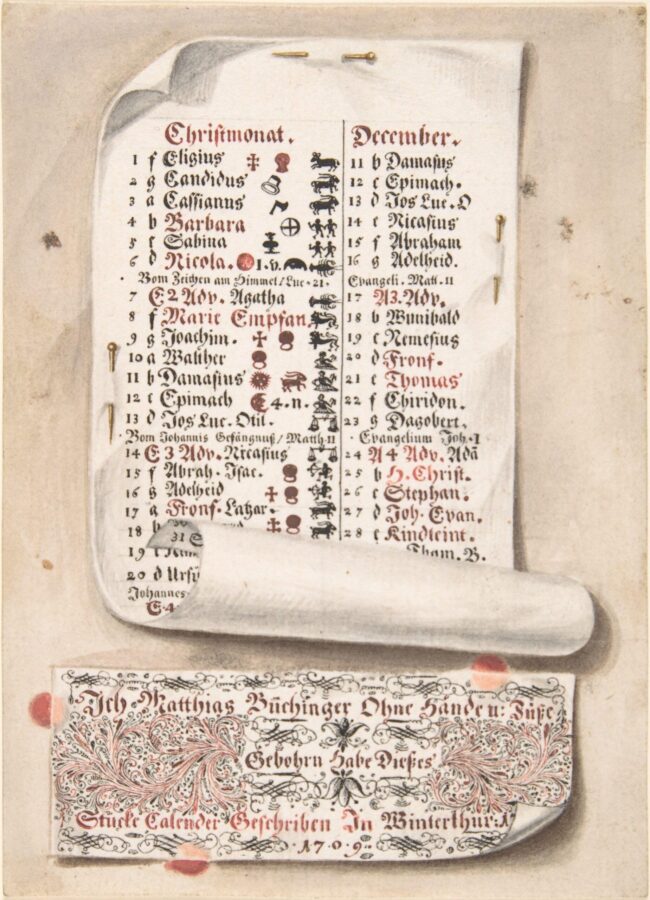 Christmonat.
1 f Eligius
2 g Candidus
3 a Cassianus
4 b Barbara
5 c Sabina
6 d Nicola. 1. v.
Vom Zeichen am Himmel/Luc. 21.
7 E 2 Adv. Agatha
8 f Marie Empfan.
9 g Joachim.
10 a Walther
11 b Damasius
12 c Epimach 4. n.
13 d Jos Luc. Otil.
Vom Johannis Gefängnuß/Matth. 11
14 E 3 Adv. Nicasius
15 f Abrah. Isac.
16 g Adelheid
17 a Fronf. Latzar.
18 b
31 S
19
20 d Ursi
Johannes
E. 4
December.
11 b Damasius
12 c Epimach.
13 d Jos Luc. O
14 e Nicasius
15 f Abraham
16 g Adelheid.
Evangeli. Matt. 11
17 A 3. Adv.
18 b Wunibald
19 c Nemesius
20 d Fronf.
21 e Thomas
22 f Chiridon.
23 g Dagobert.
Evangelium Joh. 1
24 A 4 Adv. Adā
25 b H. Christ.
26 c Stephan.
27 d Joh. Evan.
28 e Kindleint.
Tham. B.
Ich Matthias Büchinger Ohne Hände u: Füße
Gebohrn Habe Dießes
Stucke Calender Geschriben In Winterthur.
1709